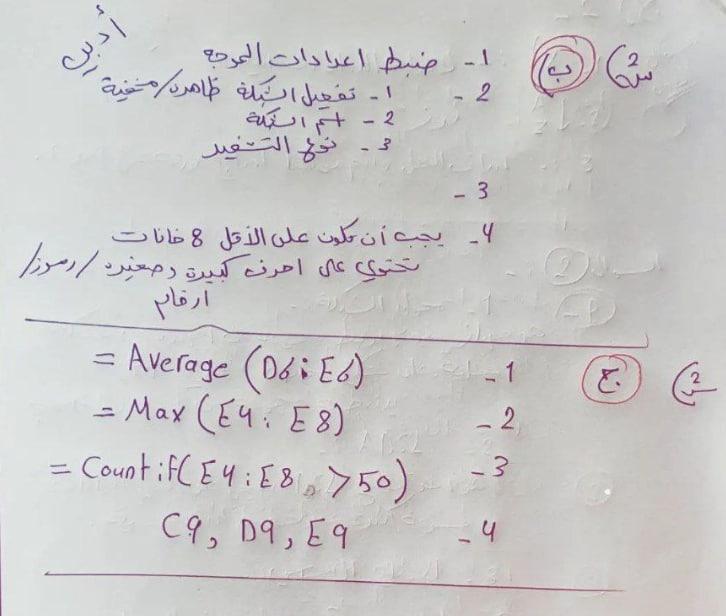 أدبي
س2 ب
1- ضبط اعدادات الموجه
2- 1- تفعيل الشبكة ظاهرة/مخفية
2- اسم الشبكة
3- نوع التشفير
3-
4- يجب أن تكون على الأقل 8 خانات
تحتوي على احرف كبيرة وصغيره/رموز/
ارقام
س2 ج
1- = Average (D6:E6)
2- = Max (E4:E8)
3- = Countif(E4:E8, >50)
4- C9, D9, E9